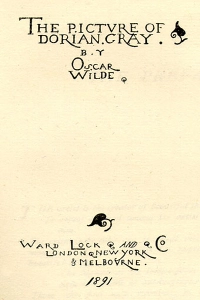 THE PICTVRE OF
DORIAN.GRAY.
B.Y
OSCAR
WILDE
WARD LOCK AND CO
LONDON NEW YORK
& MELBOVRNE.
1891